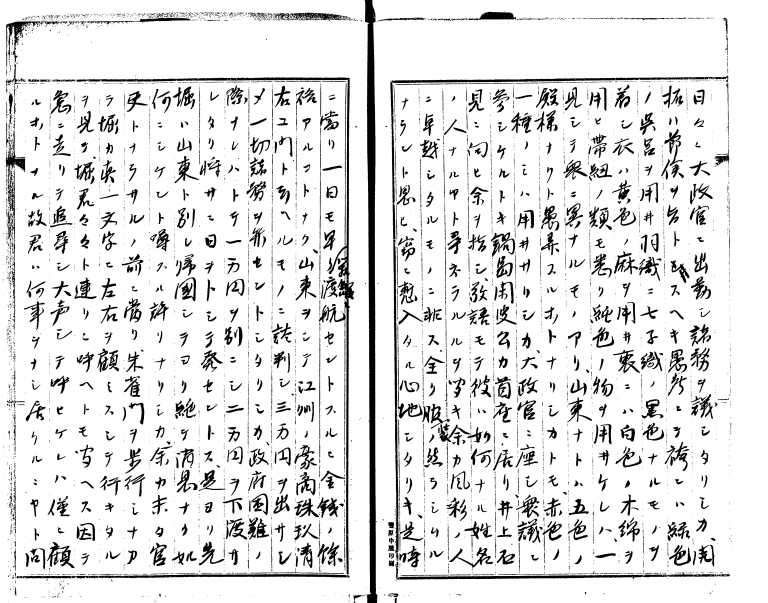 日々大政官ニ出勤シ諸務ヲ議シタリシカ、開
拓ハ前侯ヲ、スヘキ愚考ニテ袴ハ緑色
ノ呉呂ヲ用井羽織ハ七子織ノ黒色ナルモノヲ
着シ衣ハ黄色ノ麻ヲ用井裏ニハ白色ノ木綿ヲ
用ヒ帯紐ノ類モ悉ク純色ノ物ヲ用井ケレハ一
見シテ衆ニ異ナルモノアリ、山東ナトハ五色ノ
殿様ナリト愚弄スルホトナリシカトモ、赤色ノ
一種ノミハ用井サリシカ大政官ニ座シ衆議ニ
参シケルトキ鍋島閑叟公カ首座ニ居リ井上石
見ニ向ヒ余ヲ指シ敬語モテ彼ハ如何ナル姓名
ノ人ナルヤト尋ネラルルヲ聞キ余カ風彩ノ人
ニ卓越シタルモノニ非ス全ク服装ノ然ラシムル
ナラント思ヒ、窃ニ慙入タル心地シタリキ、是時
ニ当リ一日モ早ク渡航セントスルニ金銭ノ余
裕アルコトナク、山東ヲシテ江州ノ豪商珠玖清
右エ門ト云ヘルモノニ談判シ三万円ヲ出サシ
メ一切諸務ヲ弁セントシタリシカ、政府困難ノ
際ナレハトテ一万円ヲ別ニシ二万円ヲ下渡サ
レタリ将サニ日ヲトシテ発セントス是ヨリ先
堀ハ山東ト別レ帰国シテヨリ絶テ消息ナク如
何ニシケント噂スル許リナリシカ、余カ末タ官
吏トナラサルノ前ニ当リ朱雀門ヲ歩行シナカ
ラ堀カ真一文字ニ左右ヲ顧ミスシテ行キタル
ヲ見テ堀君々々ト連リニ呼ヘトモ聞ヘス因テ
急ニ走リテ追尋シ大声シテ呼セケレハ僅ニ顧
ルホトナル故君ハ何事ヲナシ居ケルニヤト問